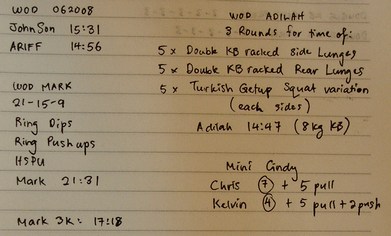 WOD 062008
Johnson 15:31
ARIFF 14:56
WOD MARK
21-15-9
Ring Dips
Ring Pushups
HSPU
Mark 21:31
Mark 3K: 17:18
WOD ADILAH
8 Rounds for time of:
5 x Double KB racked Side Lunges
5 x Double KB racked Rear Lunges
5 x Turkish Getup Squat variation
(each sides)
Adilah 14:47 (8kg KB)
Mini Cindy
Chris 7 + 5 pull
Kelvin 4 + 5 pull + 2 push